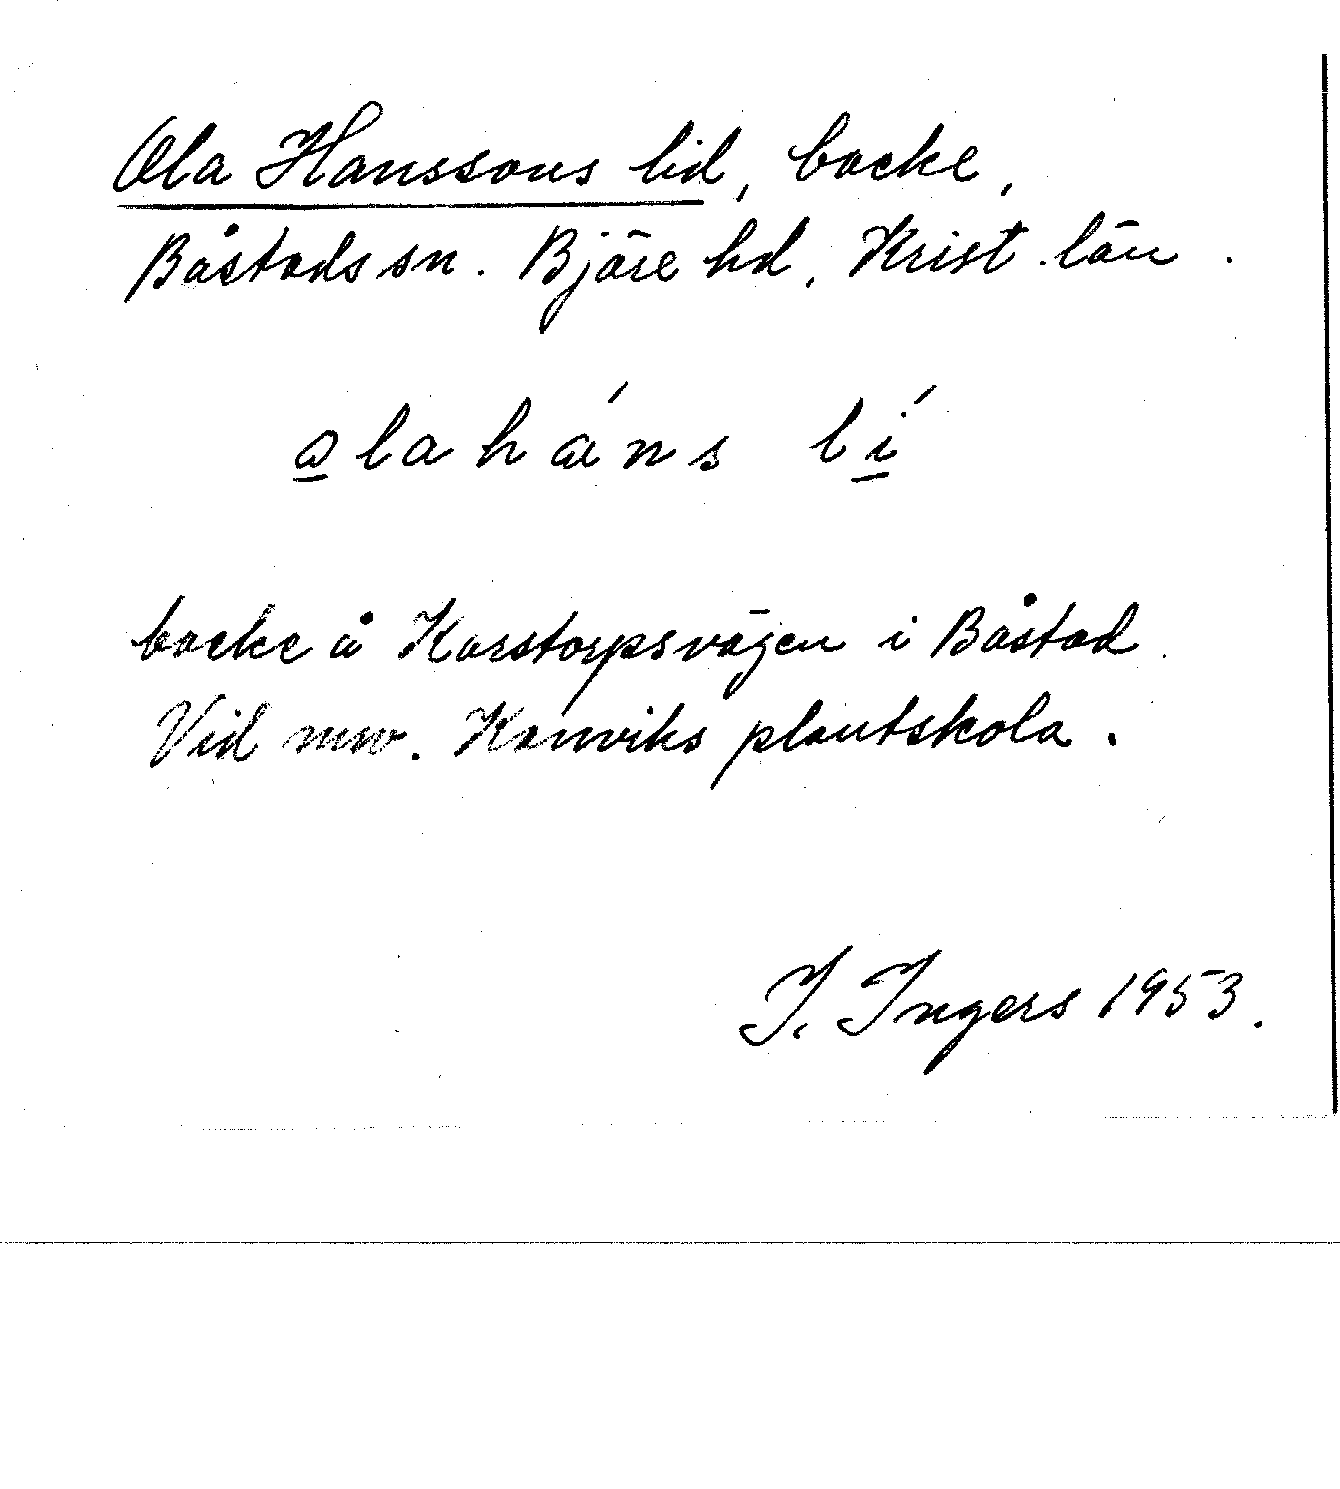 Ola Hanssons lid, backe,
Båstads sn. Bjäre hd, Krist. län.
o̲lahάns lí̲
backe å Karstorpsvägen i Båstad.
Vid nuv. Kanviks plantskola.
I. Ingers 1953.